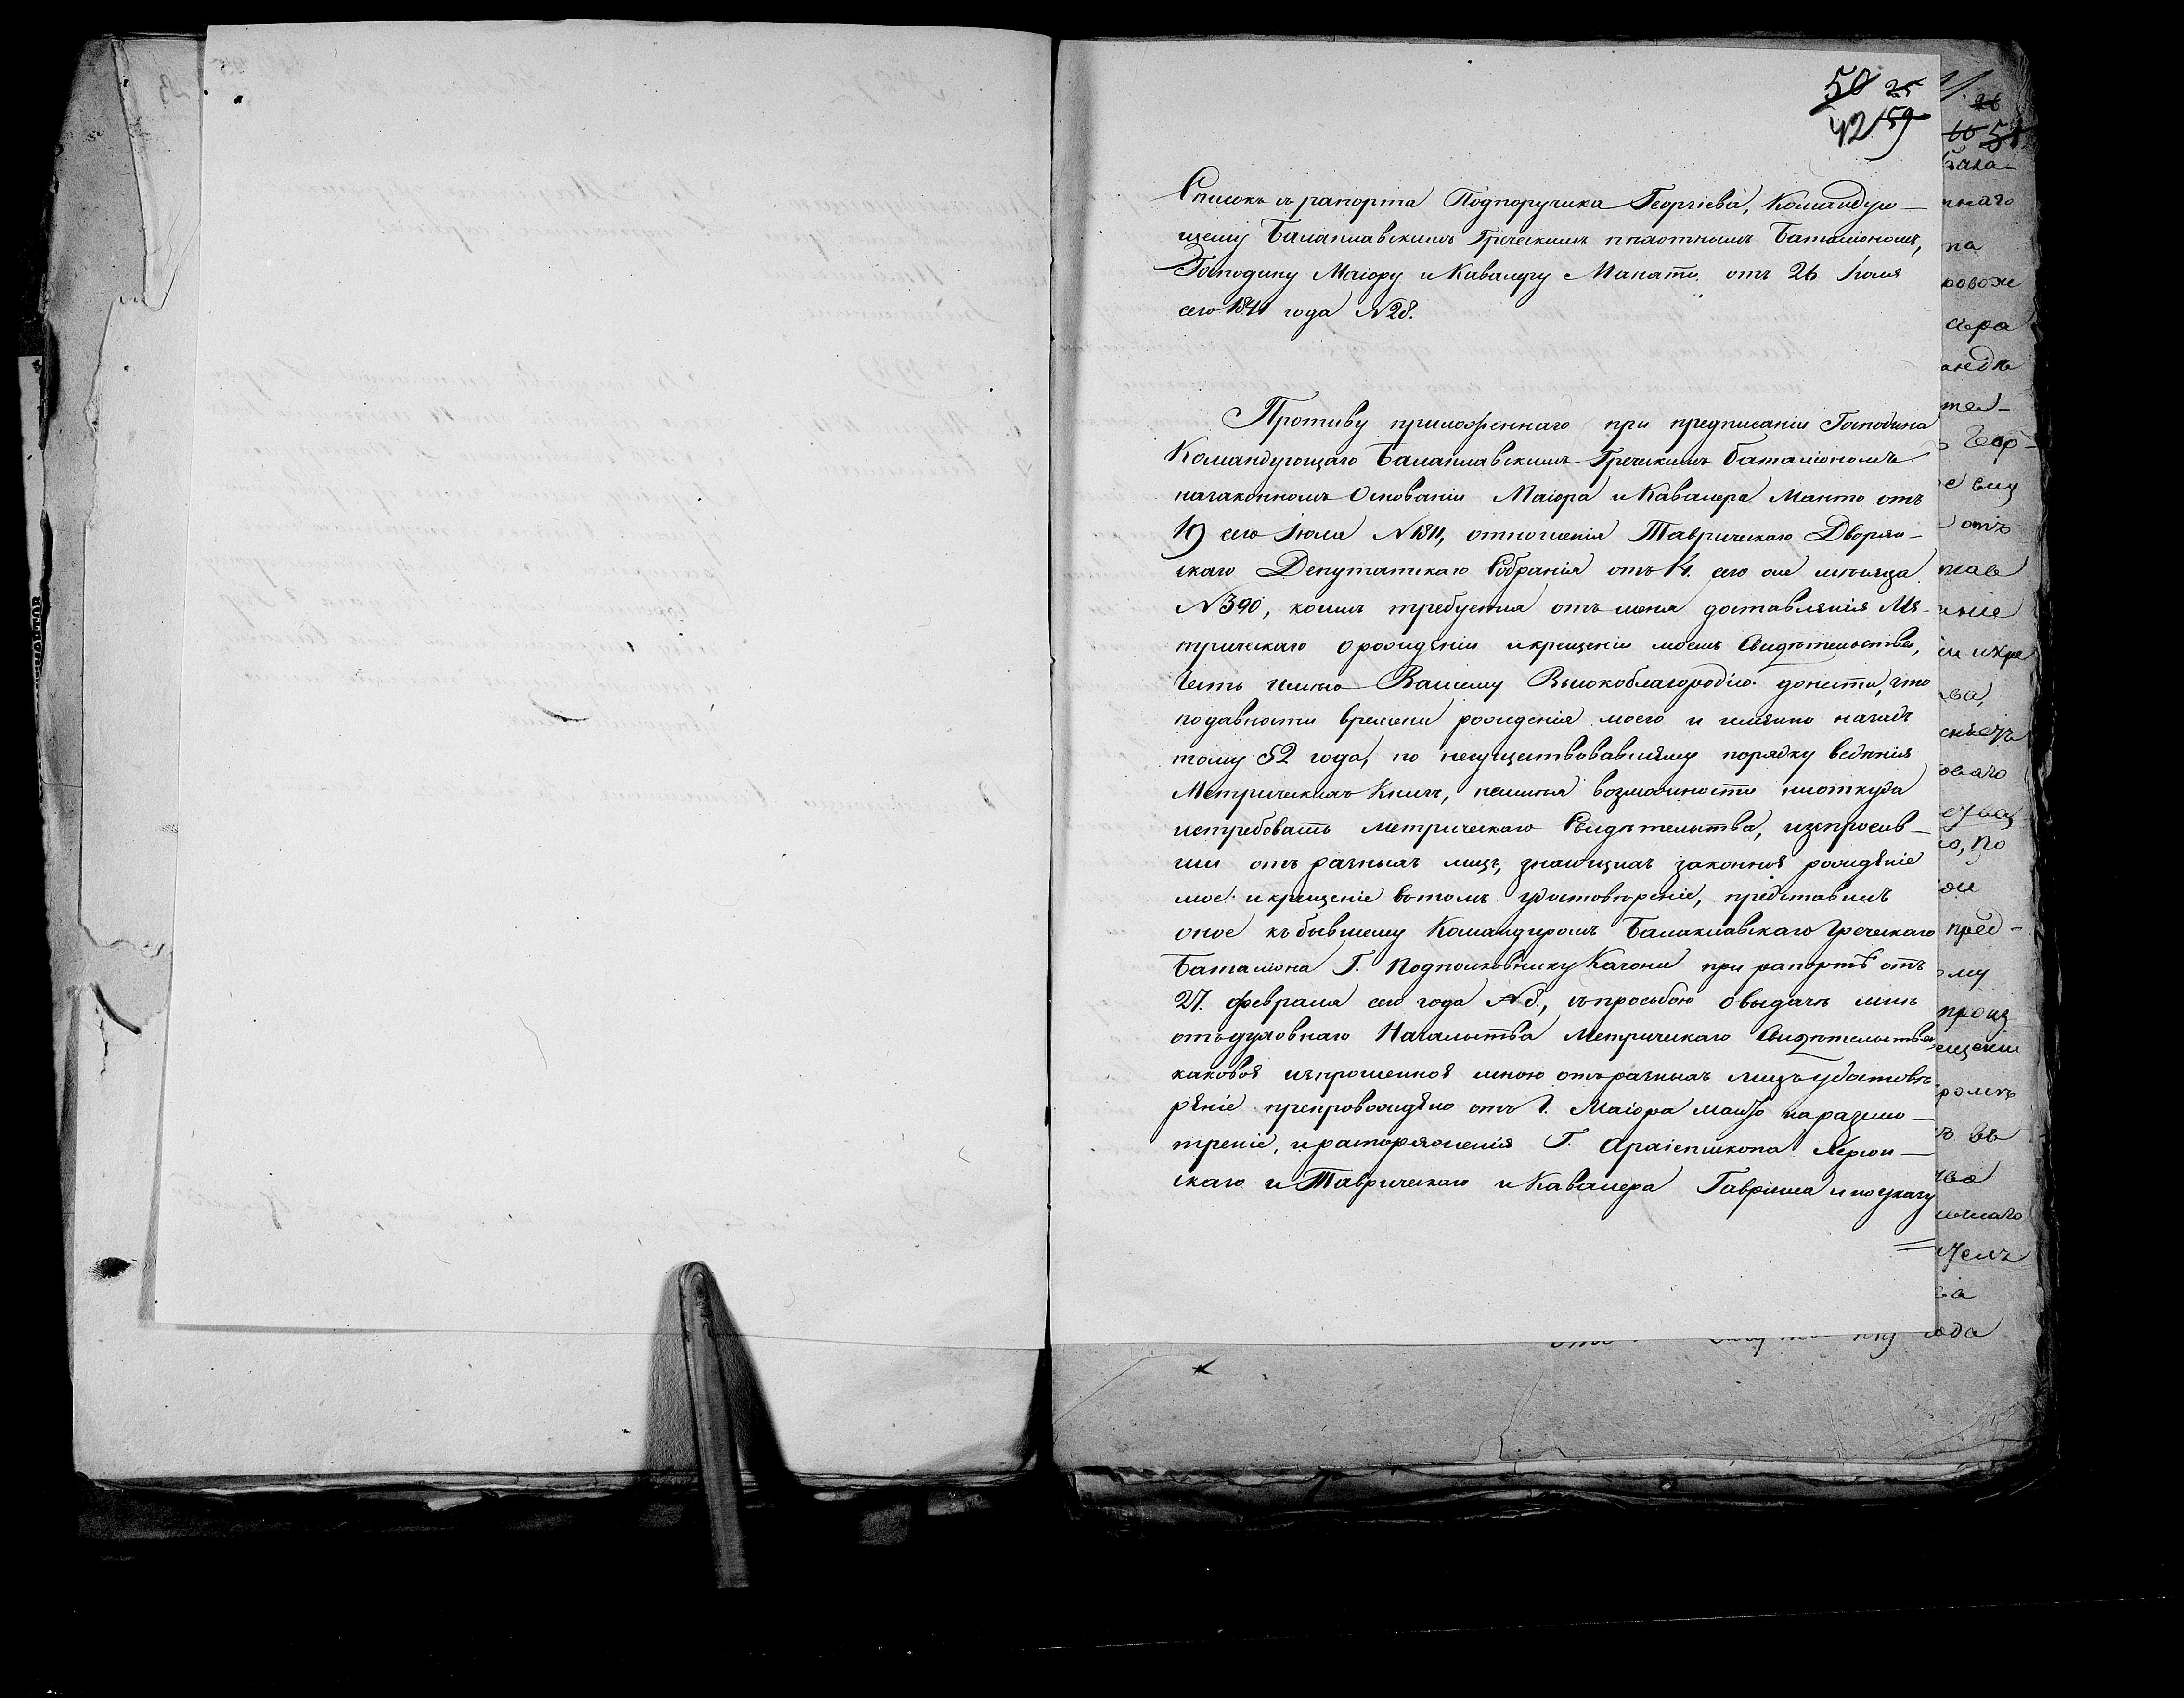 50 25
42 59
Списокъ съ рапорта Подпоручика Георгіева, Командую-
щему Балаклавскимъ Греческимъ пѣхотнымъ Баталіономъ,
Господину Маіору и Кавалеру Манто. отъ 26 Іюля
сего 1841 года №28.
Противу приложеннаго при предписаніи Господина
Командующаго Балаклавскимъ Греческимъ баталіономъ
на законномъ Основаніи Маіора и Кавалера Манто отъ
19 сего Іюля №1811, отношенія Таврическаго Дворян-
скаго Депутатскаго Собранія отъ 14. сего же мѣсяца
№390, коимъ требуется отъ меня доставленія Ме-
трическаго о рожденіи и крещеніи моемъ Свидѣтельства,
Честь имѣю Вашему Высокоблагородію донести, что
по давности времени рожденія моего и именно назадъ
тому 52 года, по несуществовавшему порядку веденія
Метрическихъ Книгъ, неимѣя возможности ниоткуда
истребовать Метрическаго Свидѣтельства, изпросив-
ши отъ разныхъ лицъ, знающихъ законное рожденіе
мое и крещеніе въ томъ удостовереніе, представилъ
оное къ бывшему Командиромъ Балаклавскаго Греческаго
Баталіона Г. Подполковнику Качони при рапортѣ отъ
27. февраля сего года №8., съ просьбою о выдачѣ мнѣ
отъ духовнаго Начальства Метрическаго Свидѣтельства
каковое изпрошенное мною отъ разныхъ лицъ удостовѣ
реніе препровождено отъ Г. Маіора Манто на разсмо-
треніе, и распоряженія Г. Архіепископа Херсон-
скаго и Таврическаго и Кавалера Гавріила и по указу